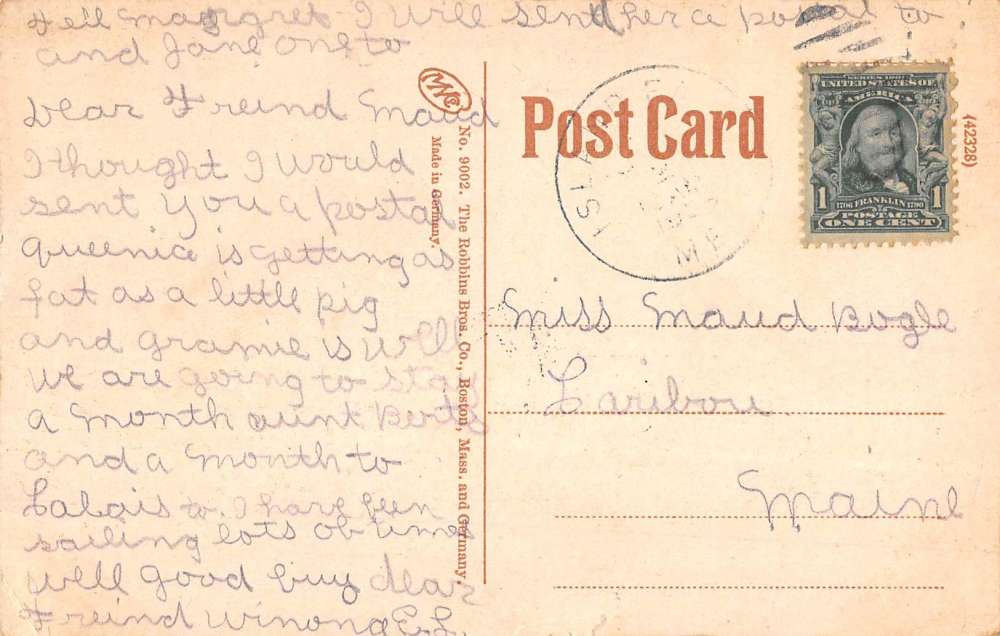 Tell Magrgret I will sent her a postal to
and Jane one to
Dear Freind Maud
I thought I would
sent you a postal
queenica is getting as
fat as a little pig
and gramie is well
we are going to stay
a month aunt Berts
and a month to
Calais to. I have ben
sailing lots of times
well good buy dear
Freind Winona E. L.
No. 9002. The Robbins Bros. Co., Boston, Mass. and Germany.
Made in Germany.
Post Card
(42328)
SERIES 1902
UNITED STATES OF
AMERICA
1 1
1706 FRANKLIN 1790
POSTAGE
ONE CENT
ME
Miss Maud Bogle
Caribou
Maine